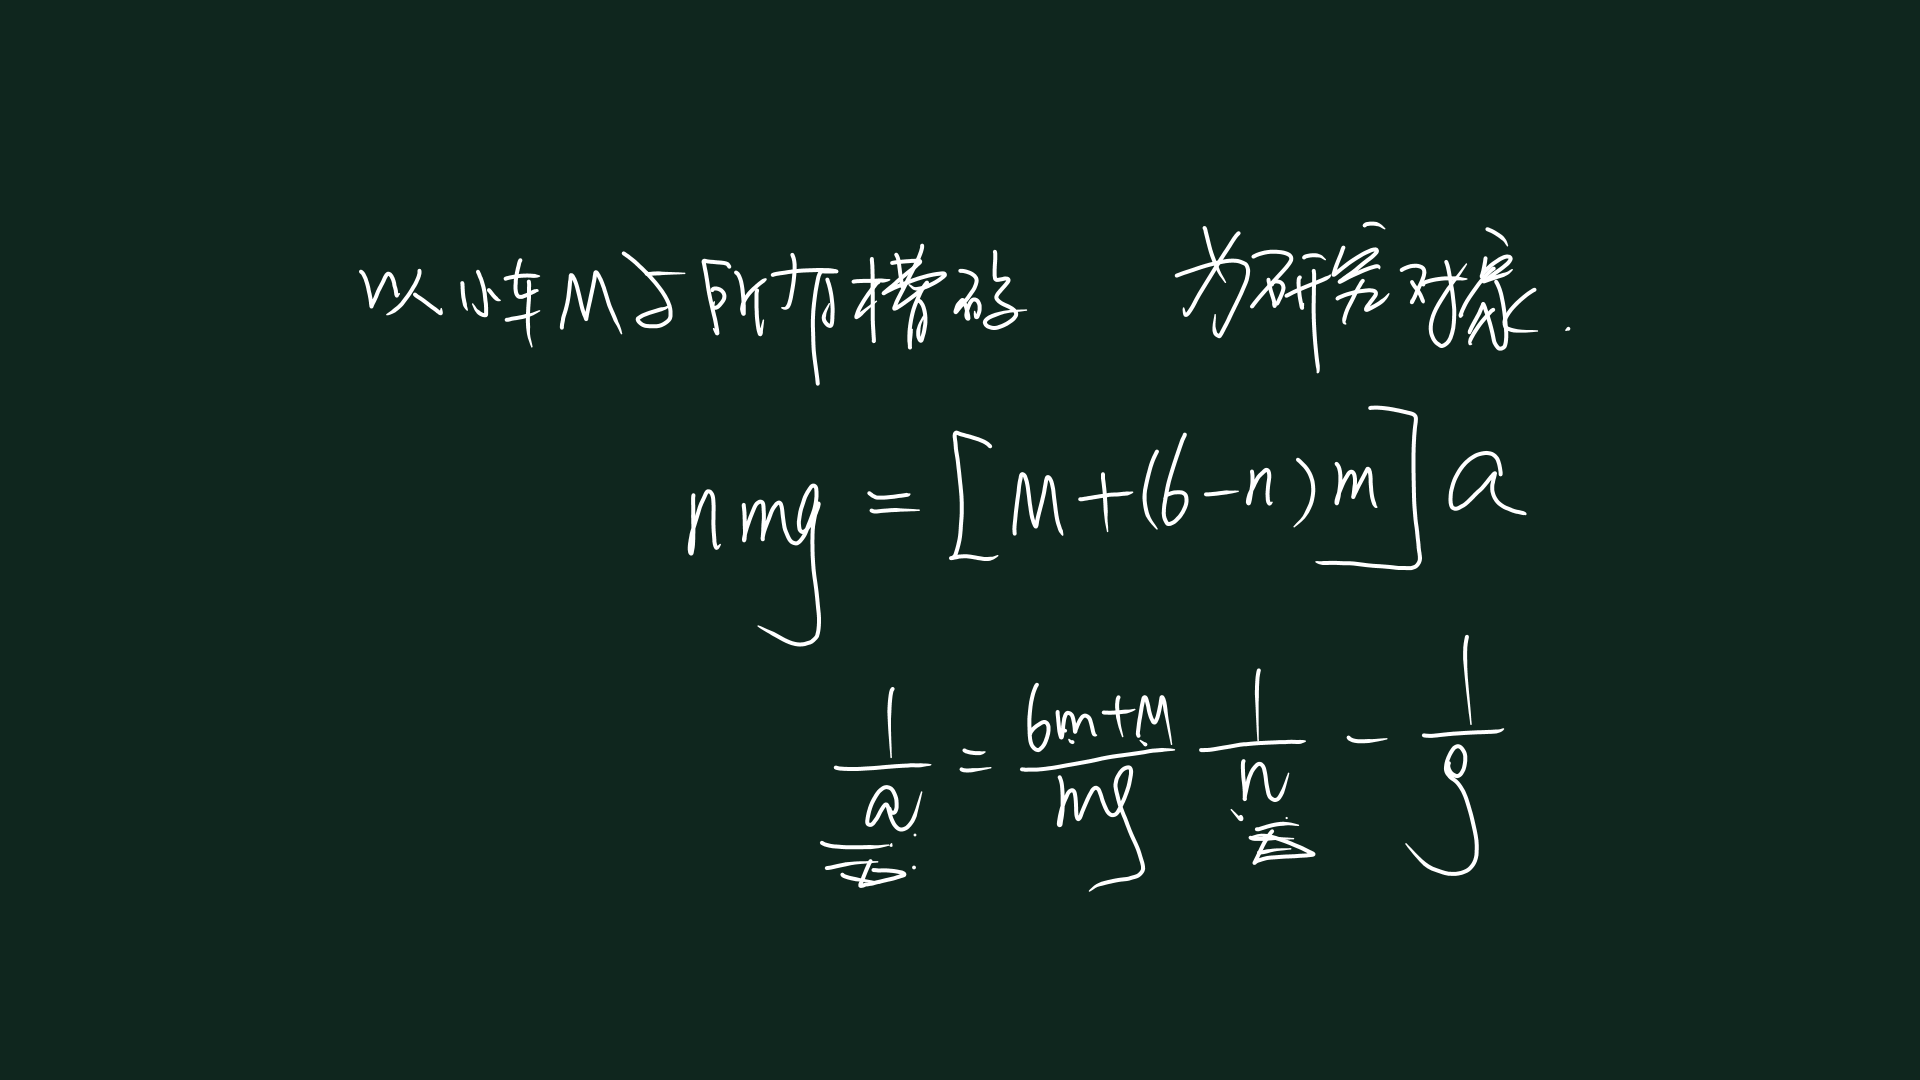 以小车M与所有槽码 为研究对象.
nmg = [M+(6-n)m]a
1/a = (6m+M)/(mg) 1/n - 1/g